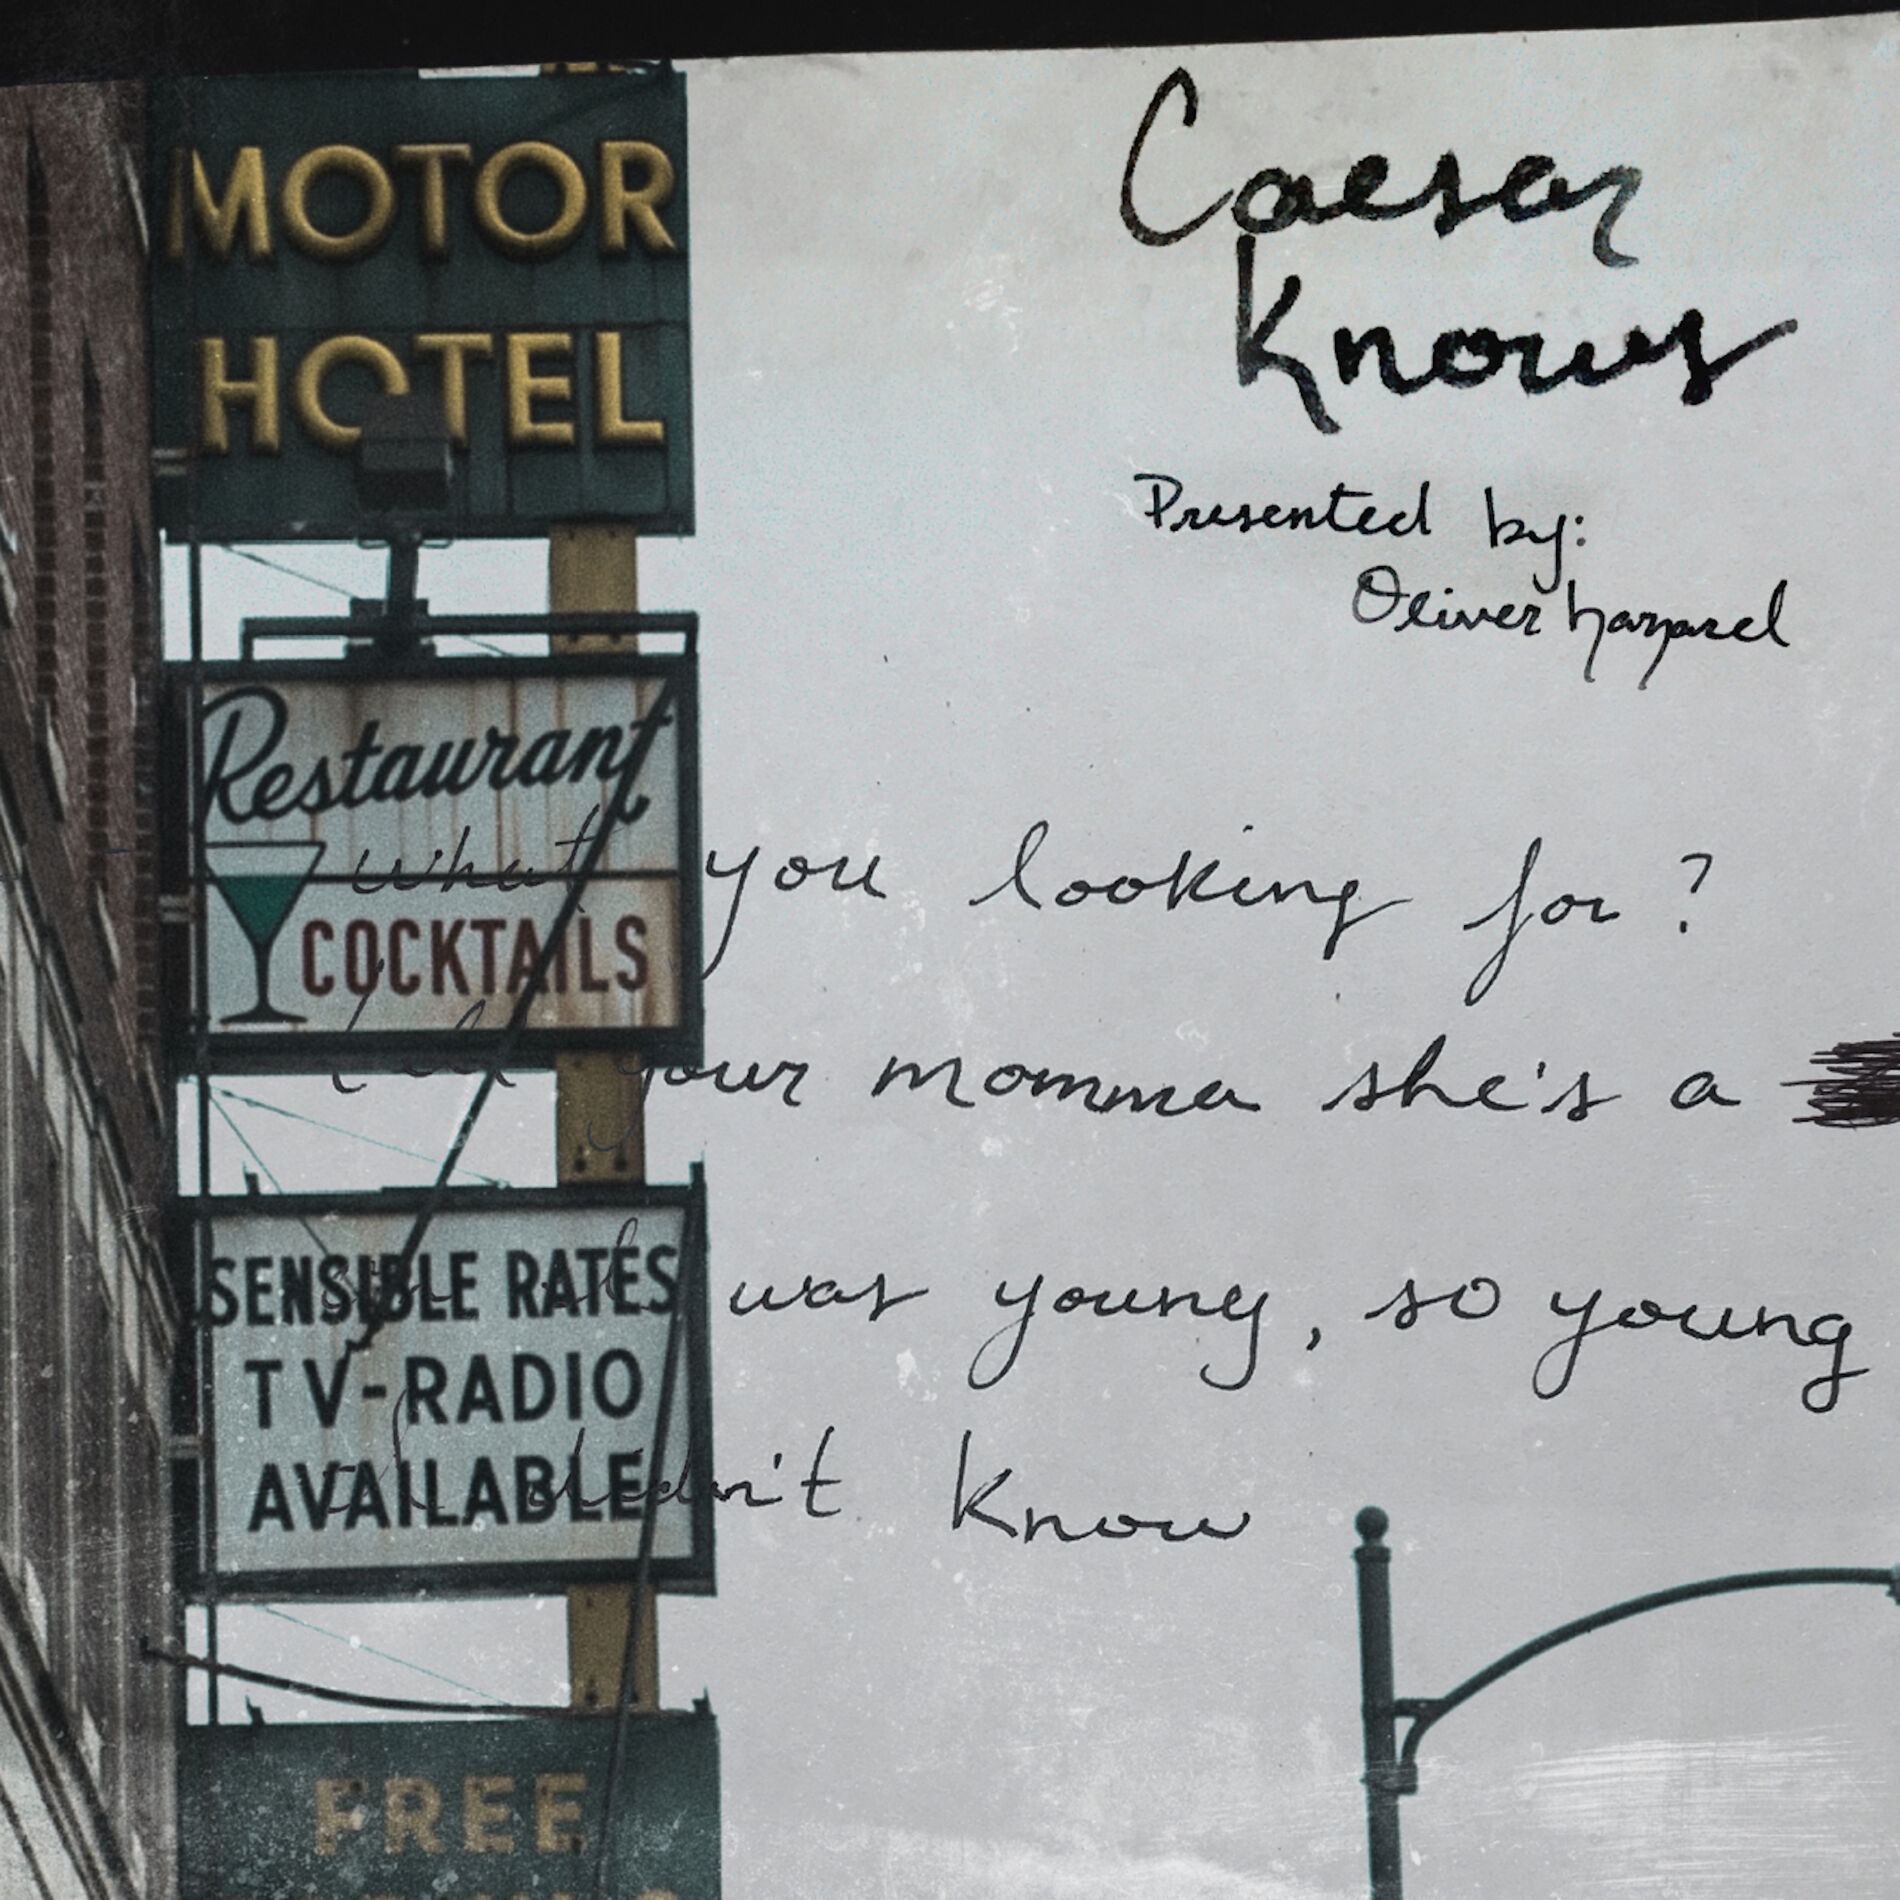 MOTOR
HOTEL
Restaurant
COCKTAILS
SENSIBLE RATES
TV-RADIO
AVAILABLE
FREE
Caesar
Knows
Presented by:
Oliver
What you looking for?
tell your momma she's a
was young, so young
didn't know